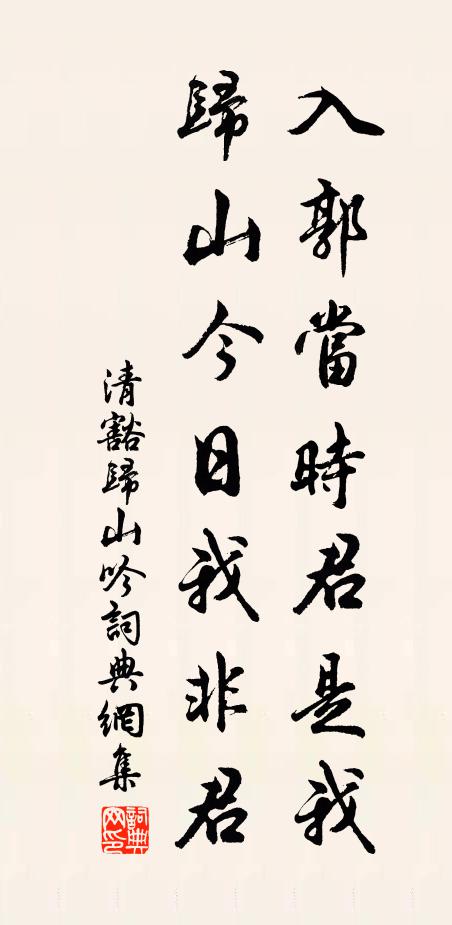 入郭當時君是我
歸山今日我非君
清豁歸山吟詞典網集
詞典网印